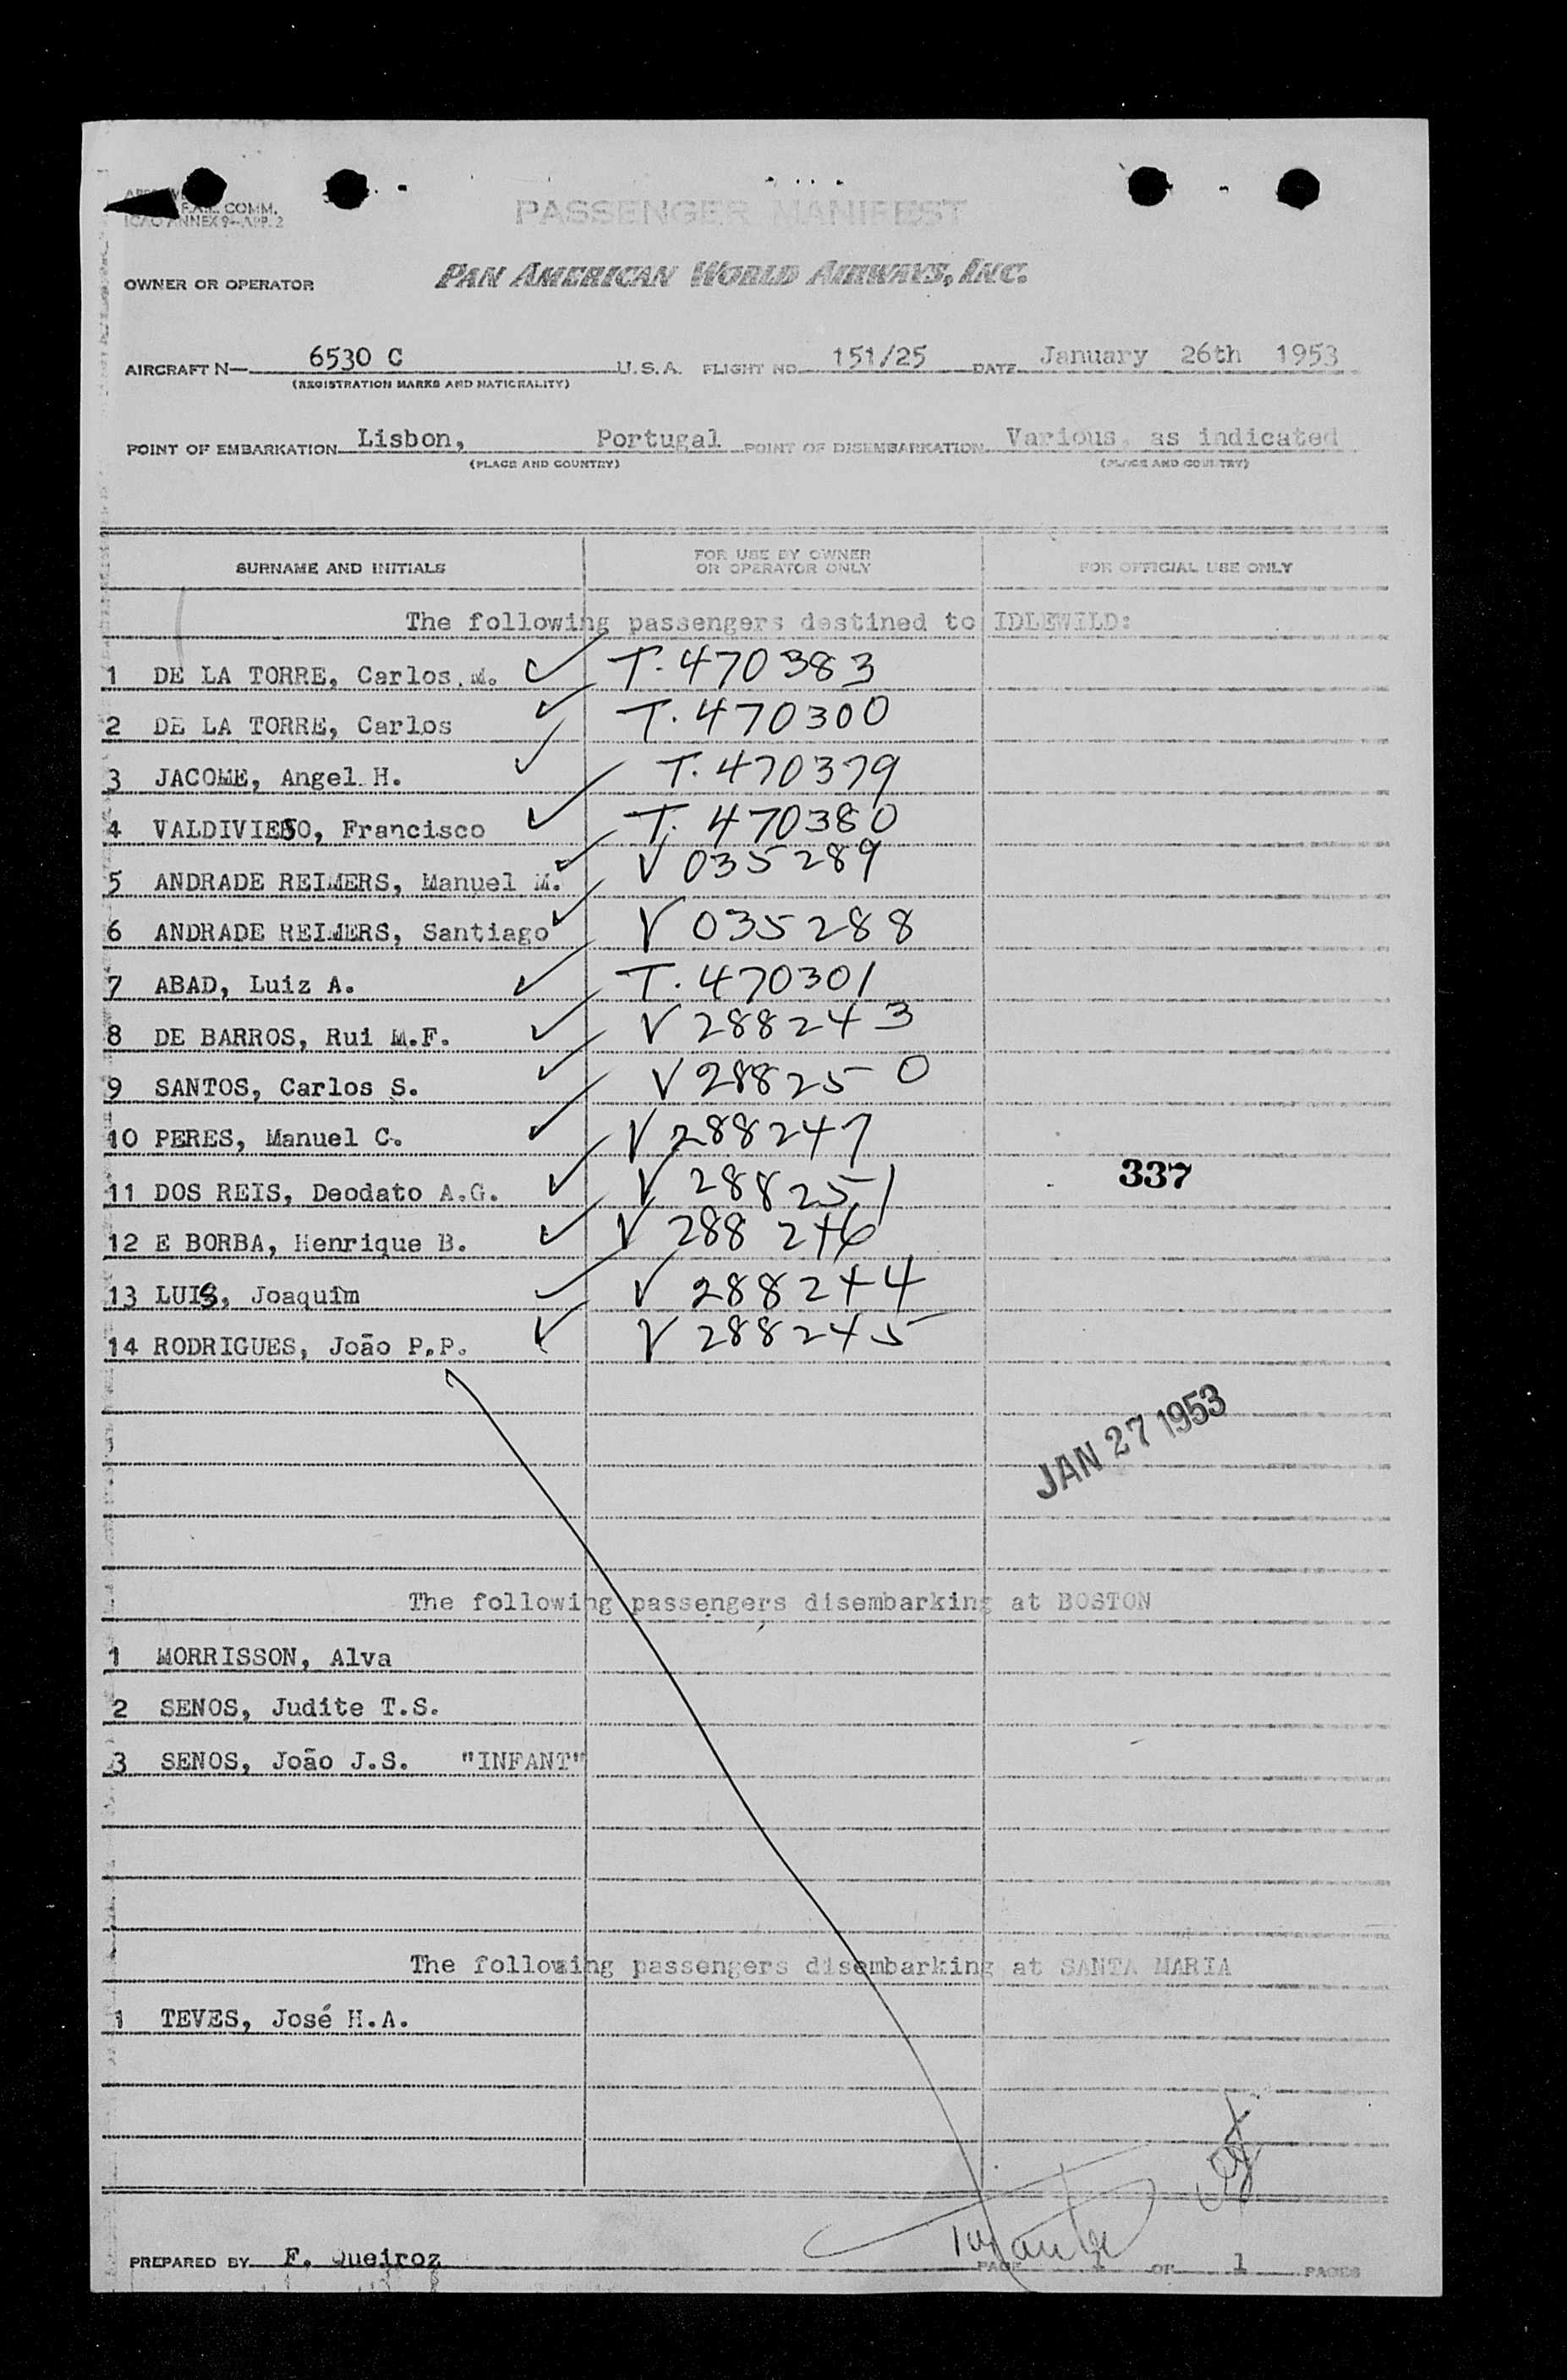 F.A.L. COMM.
ICAO ANNEX 9-APP. 2
PASSENGER MANIFEST
OWNER OR OPERATOR PAN AMERICAN WORLD AIRWAYS, INC.
AIRCRAFT N— 6530 C U.S.A. FLIGHT NO. 151/25 DATE January 26th 1953
(REGISTRATION MARKS AND NATIONALITY)
POINT OF EMBARKATION Lisbon, Portugal POINT OF DISEMBARKATION Various, as indicated
(PLACE AND COUNTRY) (PLACE AND COUNTRY)
SURNAME AND INITIALS FOR USE BY OWNER OR OPERATOR ONLY FOR OFFICIAL USE ONLY
The following passengers destined to IDLEWILD:
1 DE LA TORRE, Carlos M. ✓ T. 470383
2 DE LA TORRE, Carlos ✓ T. 470300
3 JACOME, Angel H. ✓ T. 470379
4 VALDIVIESO, Francisco ✓ T. 470380
5 ANDRADE REIMERS, Manuel M. ✓ V 035289
6 ANDRADE REIMERS, Santiago ✓ V 035288
7 ABAD, Luiz A. ✓ T. 470301
8 DE BARROS, Rui M.F. ✓ V 288243
9 SANTOS, Carlos S. ✓ V 288250
10 PERES, Manuel C. ✓ V 288247
11 DOS REIS, Deodato A.G. ✓ V 288251
337
12 E BORBA, Henrique B. ✓ V 288246
13 LUIS, Joaquim ✓ V 288244
14 RODRIGUES, João P.P. ✓ V 288245
JAN 27 1953
The following passengers disembarking at BOSTON
1 MORRISSON, Alva
2 SENOS, Judite T.S.
3 SENOS, João J.S. "INFANT"
The following passengers disembarking at SANTA MARIA
1 TEVES, José H.A.
PREPARED BY F. Queiroz PAGE 1 OF 1 PAGES